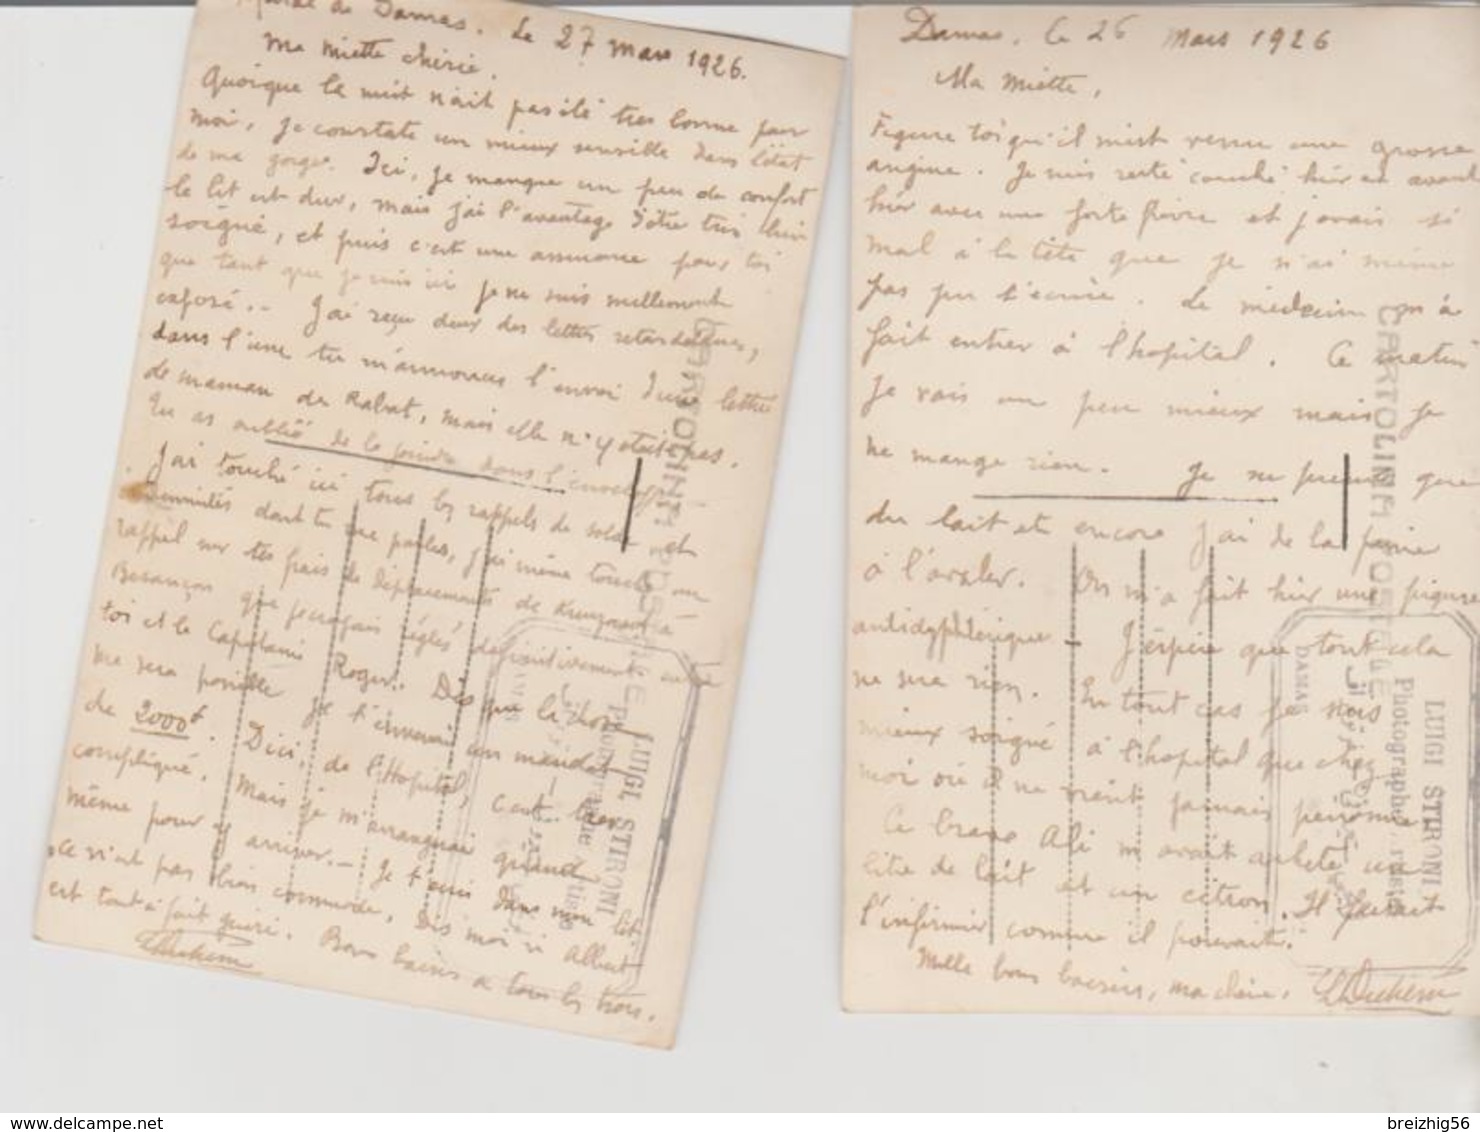 de Damas. Le 27 mars 1926.
Ma Miette chérie.
Quoique la nuit n'ait pas été très bonne pour
moi, je constate un mieux sensible dans l'état
de ma gorge. Ici, je manque un peu de confort
le lit est dur, mais j'ai l'avantage d'être très bien
soigné, et puis c'est une assurance pour toi
que tant que je suis ici je ne suis nullement
exposé.. J'ai reçu deux des lettres retardataires,
dans l'une tu m'annonces l'envoi d'une lettre
de maman de Rabat, mais elle n'y était pas.
Tu as oublié de la joindre dans l'enveloppe.
J'ai touché ici tous les rappels de solde et
indemnités dont tu me parles, j'ai même touché un
rappel sur tes frais de déplacements de à
Besançon que je croyais réglés définitivement entre
toi et le Capitaine Roger.. Dès que la chose
me sera possible je t'enverrai un mandat
de 2000f. D'ici, de l'Hopital, c'est très
compliqué. Mais je m'arrangerai quand
même pour y arriver.- Je t'écris dans mon lit
ce n'est pas bien commode. Dis moi si Albert
est tout à fait guéri. Bons baisers à tous les trois.
CARTOLINA POSTALE
LUIGI STIRONI
Photographe
DAMAS
Damas. Le 26 Mars 1926
Ma Miette,
Figure toi qu'il m'est venu une grosse
angine. Je suis resté couché hier et avant
hier avec une forte fièvre et j'avais si
mal à la tête que je n'ai même
pas pu t'écrire. Le médecin m'a
fait entrer à l'hopital. Ce matin
je vais un peu mieux mais je
ne mange rien. Je ne prends que
du lait et encore j'ai de la peine
à l'avaler. On m'a fait hier une piqure
antidyphtérique - J'espère que tout cela
ne sera rien. En tout cas je suis
mieux soigné à l'hopital que chez
moi où il ne vient jamais personne
Ce brave Ali m'avait acheté un
litre de lait et un citron. Il faisait
l'infirmier comme il pouvait.
Mille bons baisers, ma chérie.
CARTOLINA POSTALE
LUIGI STIRONI
Photographe
DAMAS
www.delcampe.net
breizhig56